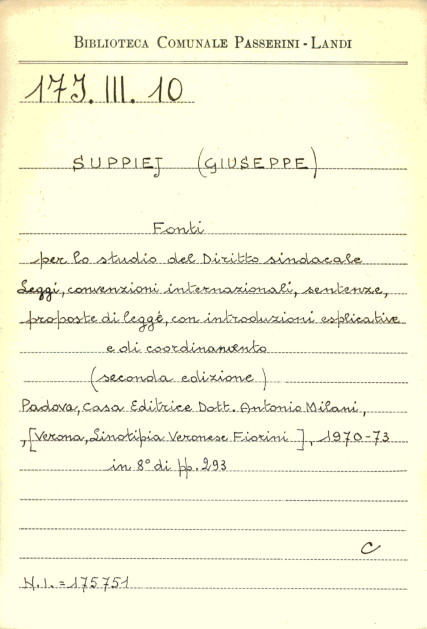 BIBLIOTECA COMUNALE PASSERINI-LANDI
17J. III. 10
SUPPIEJ (GIUSEPPE)
Fonti
per lo studio del Diritto sindacale
Leggi, convenzioni internazionali, sentenze,
proposte di legge, con introduzioni esplicative
e di coordinamento
(seconda edizione)
Padova, Casa Editrice Dott. Antonio Milani,
,[Verona, Linotipia Veronese Fiorini], 1970-73
in 8° di pp. 293
C
N.I. = 175751